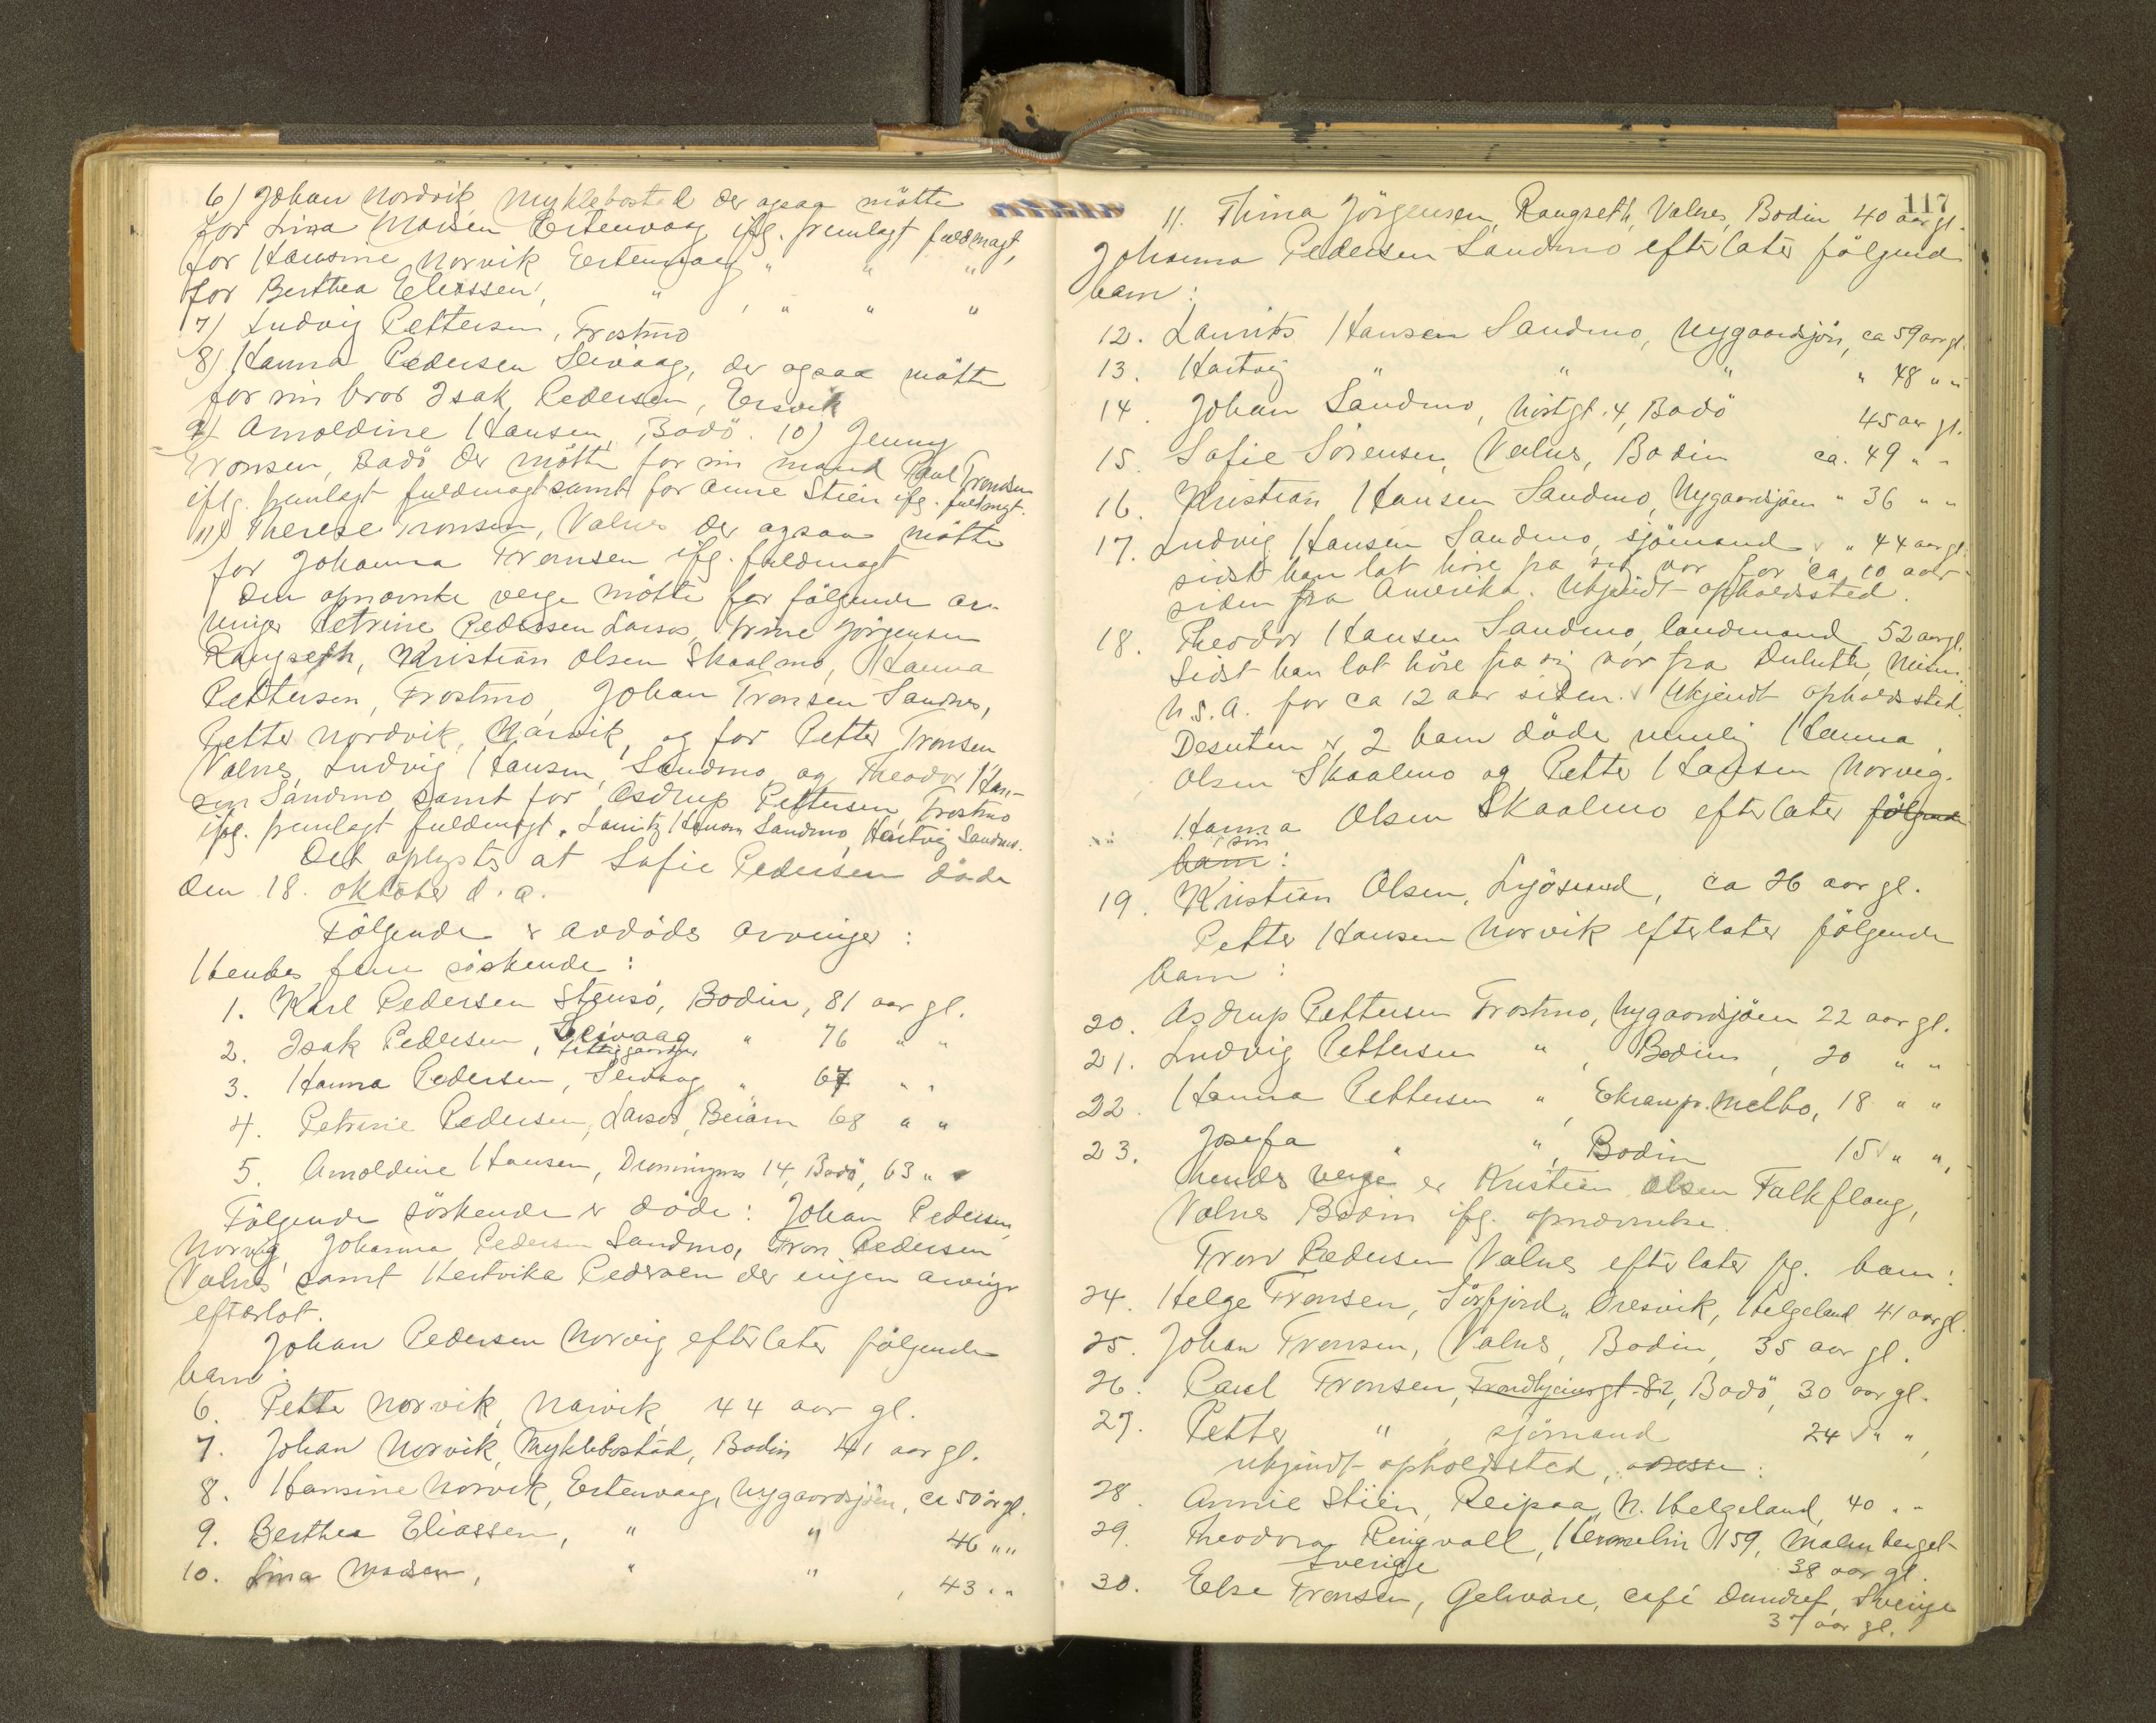 6) Johan Nordvik Myklebostad der ogsaa mötte
for Lina Madsen Ertenvaag iflg. fremlagt fuldmagt,
for Hansine Norvik Ertenvaag " " "
for Berthea Eliassen, " , " " "
7) Ludvig Pettersen, Trostmo
8) Hanna Pedersen Seivaag, der ogsaa mötte
for sin bror Isak Pedersen, Ersvik
9) Arnoldine Hansen, Bodö. 10) Jenny
Tronsen, Bodö der mötte for sin mand Paul Tronsen
iflg. fremlagt fuldmagt samt for Anne Stien iflg. fuldmagt.
11) Therese Tronsen, Valnes der ogsaa mötte
for Johanna Tronsen iflg. fuldmagt
Den opnævnte verge mötte for följende ar-
vinger Petrine Pedersen Larsos, Trine Jörgensen
Rangseth, Kristian Olsen Skaalmo, Hanna
Pettersen, Trostmo, Johan Tronsen Sandnes,
Petter Nordvik, Narvik, og for Petter Tronsen
Valnes, Ludvig Hansen, Sandmo og Theodor Han-
sen Sandmo samt for Asdrup Pettersen, Trostmo
iflg. fremlagt fuldmagt, Lauritz Hansen Sandmo, Hartvig Sandmo.
Det oplystes at Sofie Pedersen döde
den 18. oktober d. a.
Fölgende er avdödes arvinger:
Hendes fem söskende:
1. Karl Pedersen Stensö, Bodin, 81 aar gl.
2. Isak Pedersen, Seivaag " 76 " "
3. Hanna Pedersen, Seivaag " 67 " "
4. Petrine Pedersen, Larsos, Beiarn 68 " "
5. Arnoldine Hansen, Dronningens 14, Bodö, 63 " "
Fölgende söskende er döde: Johan Pedersen,
Norvig, Johanna Pedersen Sandmo, Tron Pedersen
Valnes samt Hertvika Pedersen der ingen arvinger
efterlot.
Johan Pedersen Norvig efterlater fölgende
barn:
6. Petter Norvik, Narvik, 44 aar gl.
7. Johan Norvik, Myklebostad, Bodin 41 aar gl.
8. Hansine Norvik, Ertenvaag, Nygaardsjöen, ca 50 år gl.
9. Berthea Eliassen, " " 46 " "
10. Lina Madsen, " " , 43 " "
117
11. Thina Jörgensen, Rangseth, Valnes, Bodin 40 aar gl.
Johanna Pedersen Sandmo efterlater fölgend
barn:
12. Laurits Hansen Sandmo, Nygaardsjön, ca 59 aar gl.
13. Hartvig " " " " 48 " "
14. Johan Sandmo, Nostgt. 4, Bodö 45 aar gl.
15. Sofie Sörensen, Valnes, Bodin ca. 49 " "
16. Kristian Hansen Sandmo, Nygaardsjöen " 36 " "
17. Ludvig Hansen Sandmo, sjömand " 44 aar gl.
sidst han lot höre fra sig var for ca 10 aar
siden fra Amerika. Ukjendt opholdssted.
18. Theodor Hansen Sandmo, landmand 52 aar gl.
Sidst han lot höre fra sig var fra Duluth, Minn.
U.S.A. for ca 12 aar siden. Ukjendt opholdssted.
Desuten er 2 barn döde nemlig Hanna
Olsen Skaalmo og Petter Hansen Norvig.
Hanna Olsen Skaalmo efterlater fölgende
1 sön
barn:
19. Kristian Olsen, Ljösund, ca 26 aar gl.
Petter Hansen Norvik efterlater fölgende
barn:
20. Asdrup Pettersen Trostmo, Nygaardsjöen 22 aar gl.
21. Ludvig Pettersen " , Bodin, 20 " "
22. Hanna Pettersen " , Melbo, 18 " "
23. Josefa " " , Bodin 15 " "
hendes verge er Kristian Olsen Falkflaug,
Valnes Bodin iflg. opnævnelse.
Tron Pedersen Valnes efterlater flg. barn:
24. Helge Tronsen, Sörfjord, Oresvik, Helgeland 41 aar gl.
25. Johan Tronsen, Valnes, Bodin, 35 aar gl.
26. Paul Tronsen, Trondhjemsgt. 82, Bodö, 30 aar gl.
27. Petter " , sjömand 24 " "
ukjendt opholdssted, adresse:
28. Annie Stiën, Reipaa, N. Helgeland, 40 " "
29. Theodora Ringvall, Hermelin 159, Malmberget
Sverige 38 aar gl.
30. Else Tronsen, Gelivare, café Dundret, Sverige
37 aar gl.